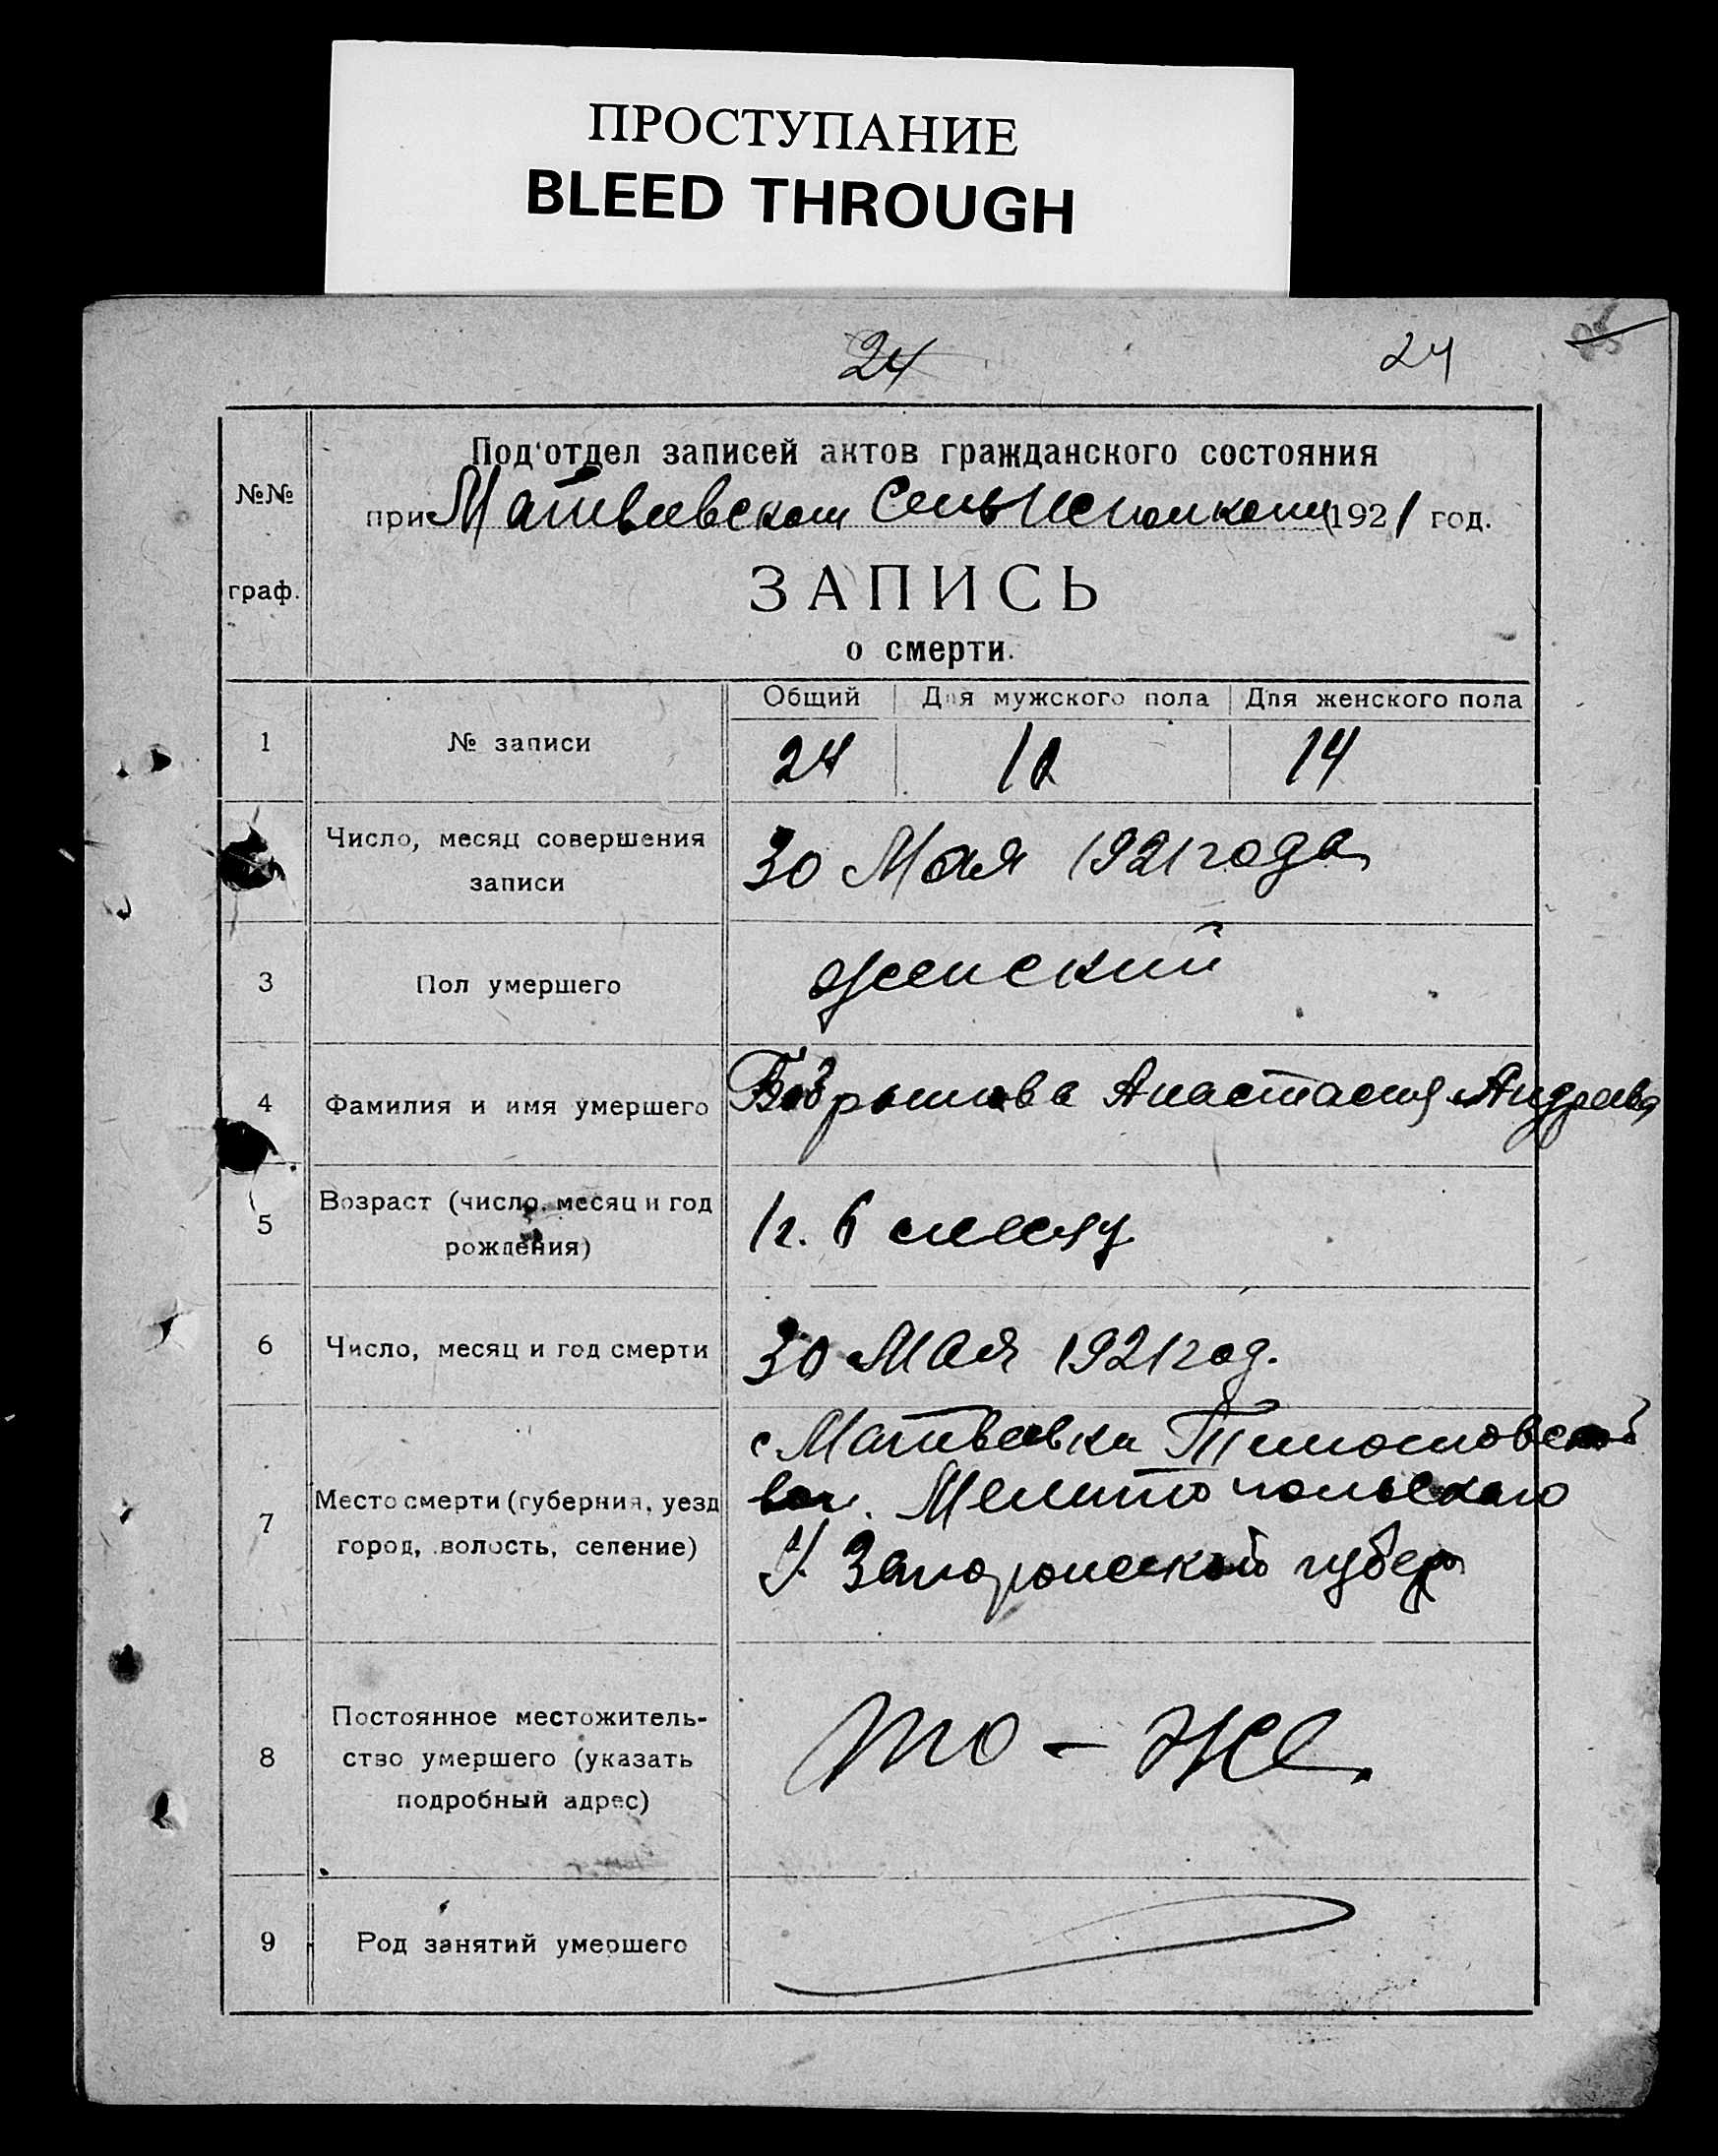 ПРОСТУПАНИЕ
BLEED THROUGH
24 24
Под'отдел записей актов гражданского состояния
№№
при Матвеевском Сельисполкоми 1921 год.
граф.
ЗАПИСЬ
о смерти.
Общий Для мужского пола Для женского пола
1 № записи 24 10 14
Число, месяц совершения
записи
30 Мая 1921 года
3 Пол умершего женский
4 Фамилия и имя умершего Анастасия Андреева
5 Возраст (число, месяц и год
рождения)
1г. 6 месяц
6 Число, месяц и год смерти 30 Мая 1921 год.
с Матвеевка Тимошовской
вол. Мелитопольскаго
У. Запорожской губер
7 Место смерти (губерния, уезд
город, волость, селение)
8 Постоянное местожитель-
ство умершего (указать
подробный адрес)
то - же
9 Род занятий умершего